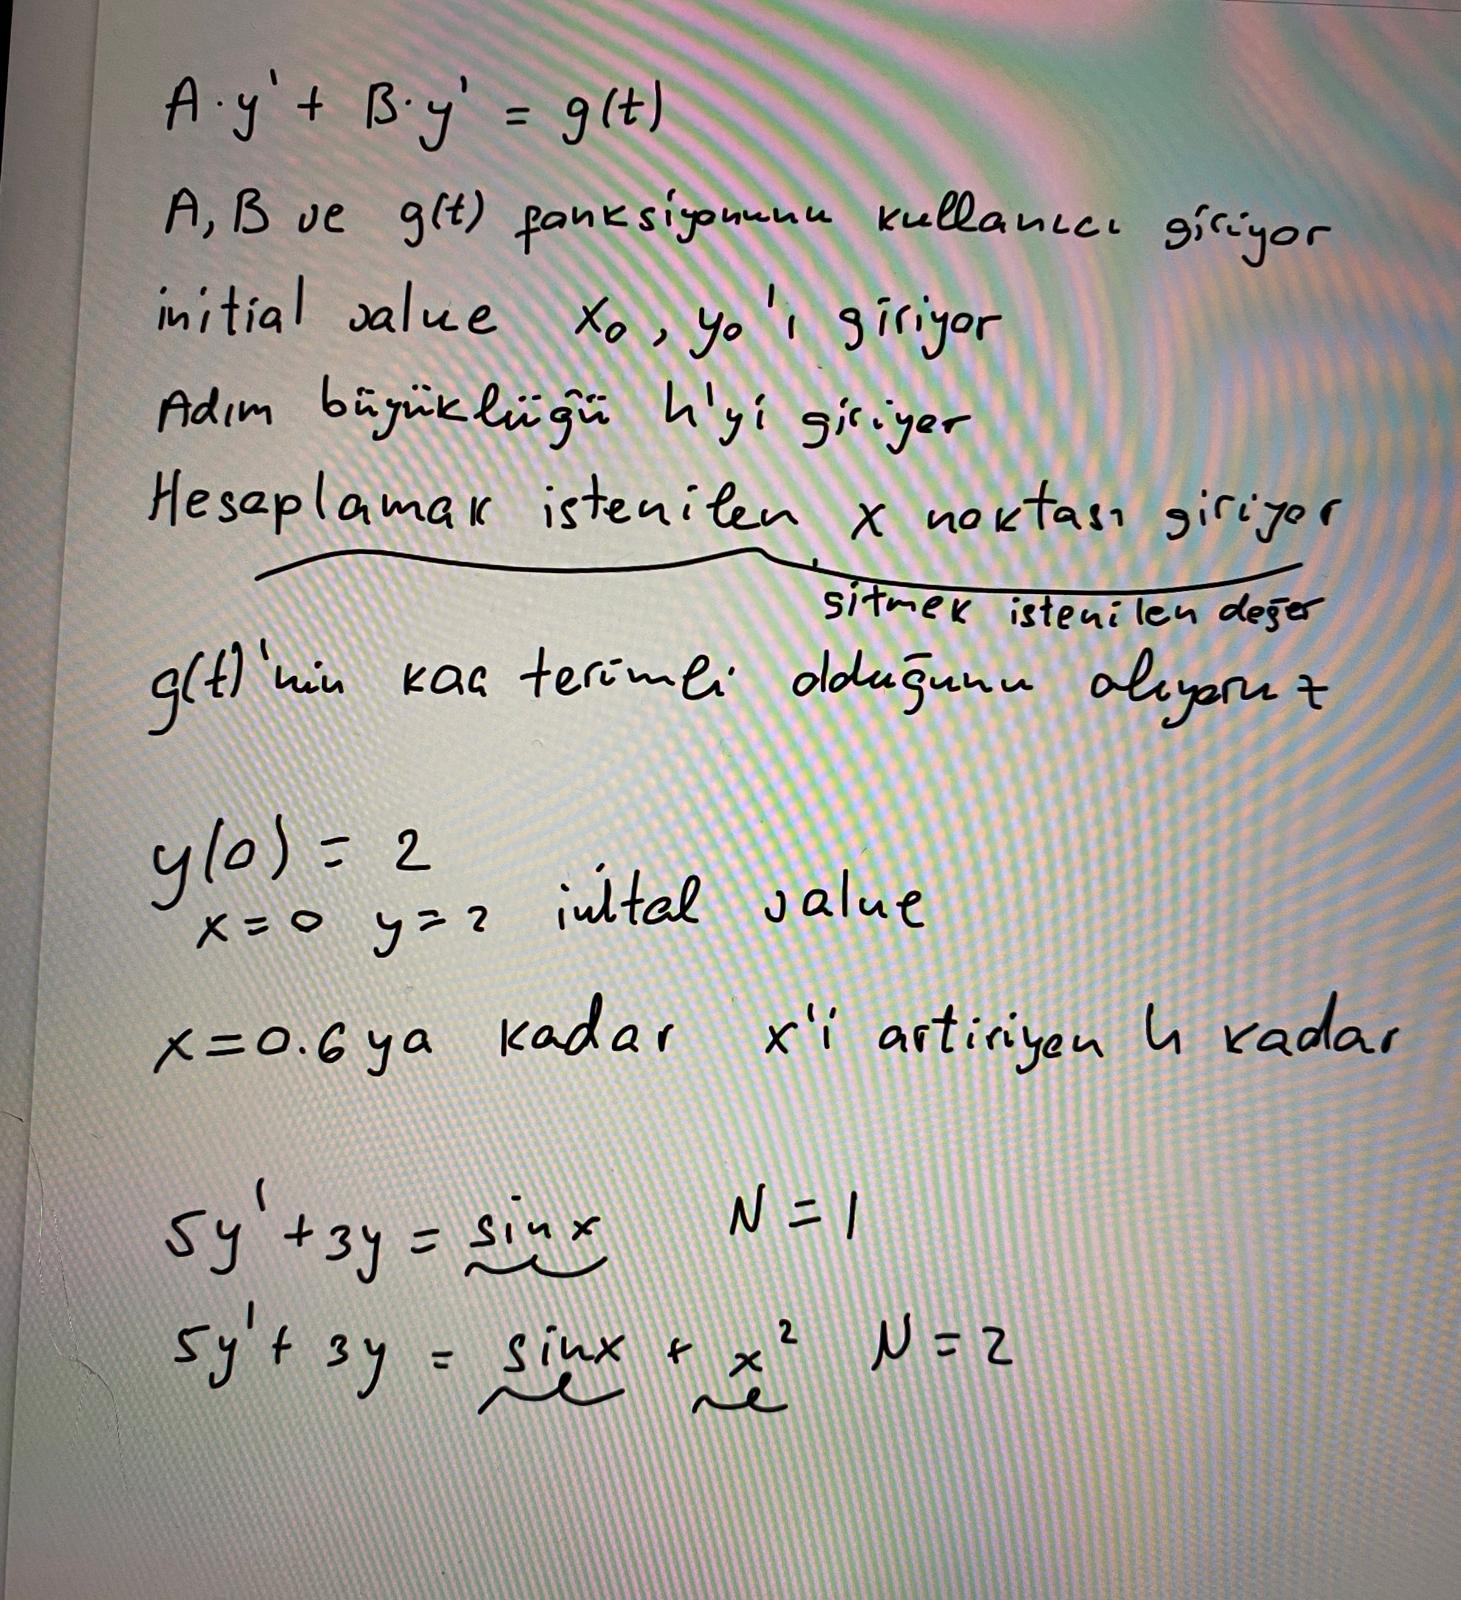 A·y' + B·y' = g(t)
A, B ve g(t) fonksiyonunu kullanıcı giriyor
initial value x₀, y₀'ı giriyor
Adım büyüklüğü h'yi giriyor
Hesaplamak istenilen x noktası giriyor
gitmek istenilen değer
g(t)'nin kaç terimli olduğunu alıyoruz
y(0) = 2
x=0 y=2 iniltal value
x=0.6 ya kadar x'i artiriyon h kadar
5y' + 3y = sinx N=1
5y' + 3y = sinx + x² N=2